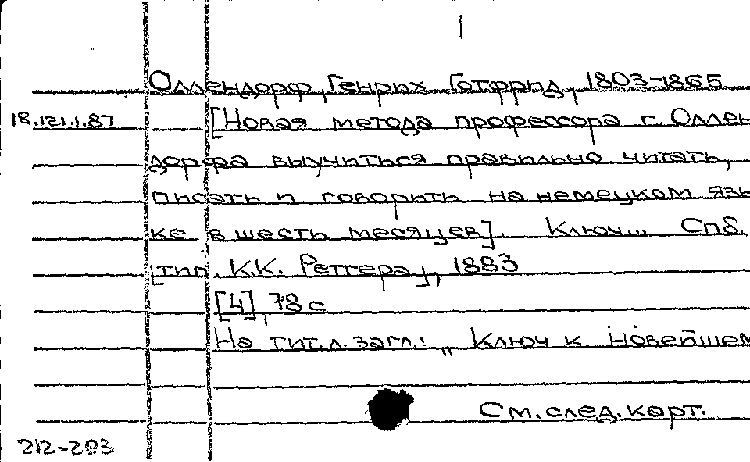 Оллендорф, Генрих Готфрид, 1803-1865
18.121.1.87 [Новая метода профессора г. Оллен-
дорфа выучиться правильно читать,
писать и говорить на немецком язы
ке в шесть месяцев]. Ключ... Спб.
[тип. К.К. Ретгера], 1883
[4], 78 с
На тит.л. загл.: „Ключ к новейшем
См. след. карт.
212-203